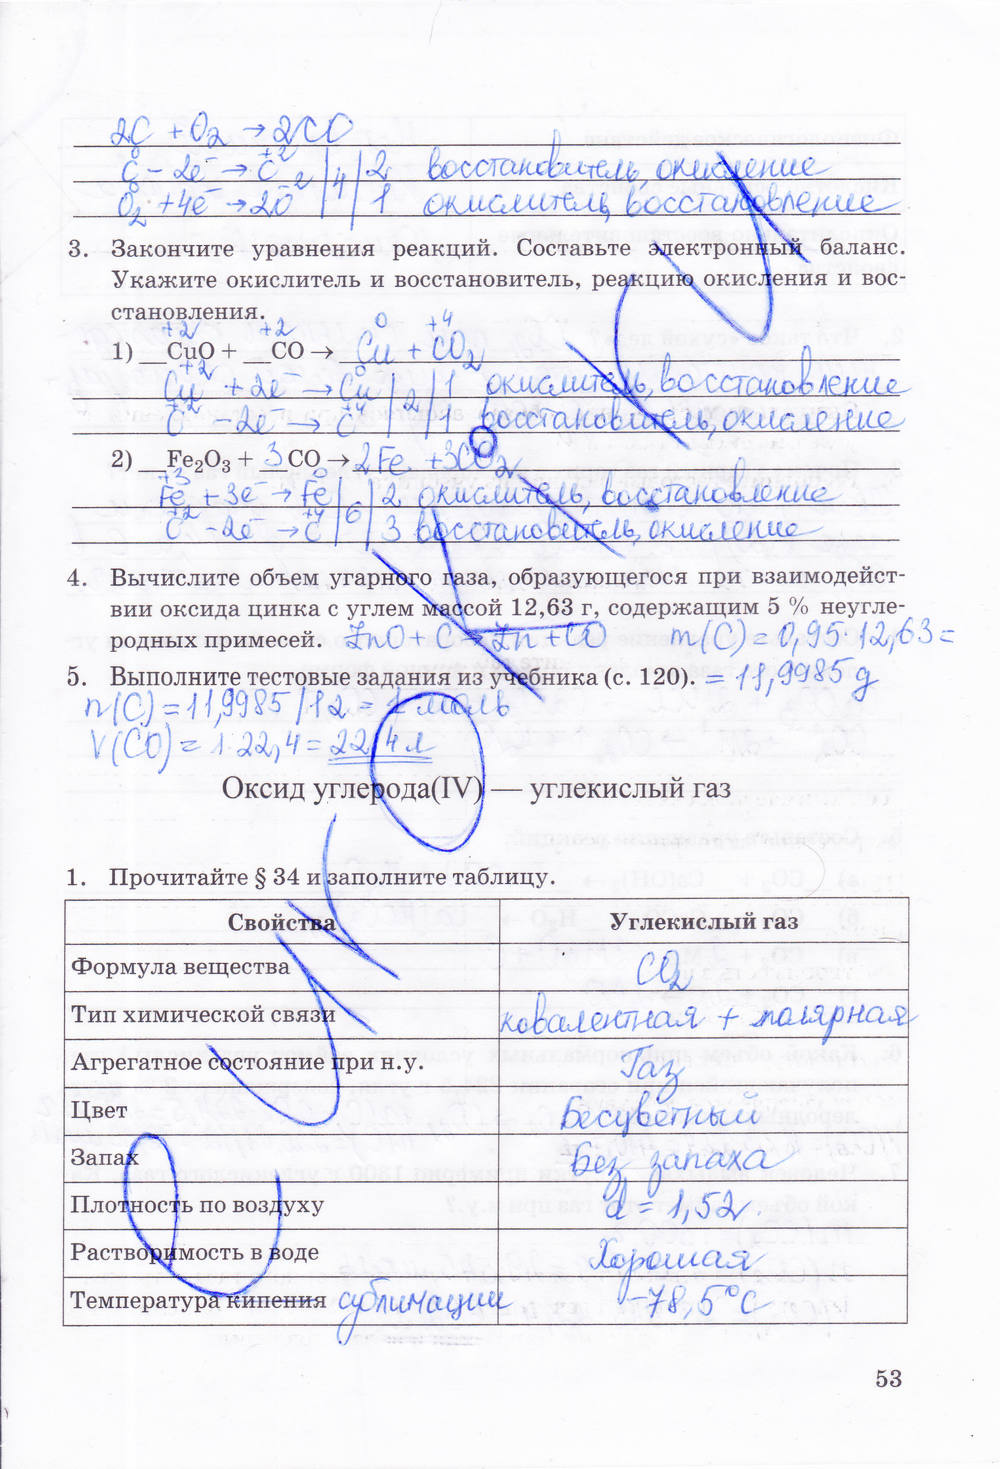 2C + O2 → 2CO
C⁰ - 2e⁻ → C⁺² | 4 | 2 восстановитель, окисление
O2⁰ + 4e⁻ → 2O⁻² | 1 окислитель, восстановление
3. Закончите уравнения реакций. Составьте электронный баланс.
Укажите окислитель и восстановитель, реакцию окисления и вос-
становления.
+2 +2 0 +4
1) __CuO + __CO → Cu + CO2
Cu⁺² + 2e⁻ → Cu⁰ | 2 | 1 окислитель, восстановление
C⁺² - 2e⁻ → C⁺⁴ | 1 восстановитель, окисление
2) __Fe2O3 + 3CO → 2Fe + 3CO2
Fe⁺³ + 3e⁻ → Fe⁰ | 6 | 2 окислитель, восстановление
C⁺² - 2e⁻ → C⁺⁴ | 3 восстановитель, окисление
4. Вычислите объем угарного газа, образующегося при взаимодейст-
вии оксида цинка с углем массой 12,63 г, содержащим 5 % неугле-
родных примесей. ZnO + C → Zn + CO m(C) = 0,95·12,63 =
5. Выполните тестовые задания из учебника (с. 120). = 11,9985 g
n(C) = 11,9985/12 = 1 моль
V(CO) = 1·22,4 = 22,4 л
Оксид углерода(IV) — углекислый газ
1. Прочитайте § 34 и заполните таблицу.
Свойства Углекислый газ
Формула вещества CO2
Тип химической связи ковалентная + полярная
Агрегатное состояние при н.у. Газ
Цвет Бесцветный
Запах Без запаха
Плотность по воздуху d = 1,52.
Растворимость в воде Хорошая
Температура кипения сублимации -78,5°C
53